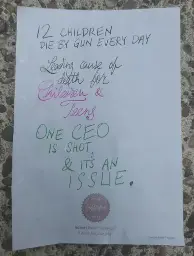 12 CHILDREN
DIE BY GUN EVERY DAY
Leading cause of
death for
Children &
Teens
ONE CEO
IS SHOT
& IT'S AN
ISSUE.